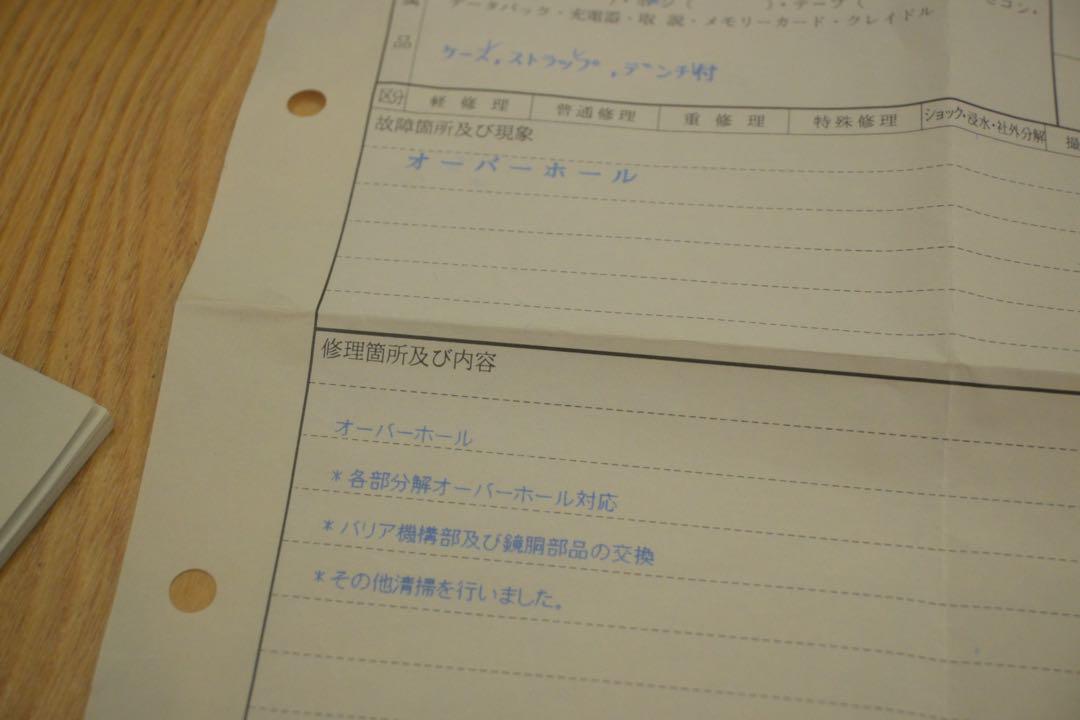 データパック・充電器・取 説・メモリーカード・クレイドル
品
ケース,ストラップ,デンチ付
区分 軽 修 理 普通修理 重 修 理 特殊修理 ショック・浸水・社外分解
故障箇所及び現象
オーバーホール
修理箇所及び内容
オーバーホール
*各部分解オーバーホール対応
*バリア機構部及び鏡胴部品の交換
*その他清掃を行いました。